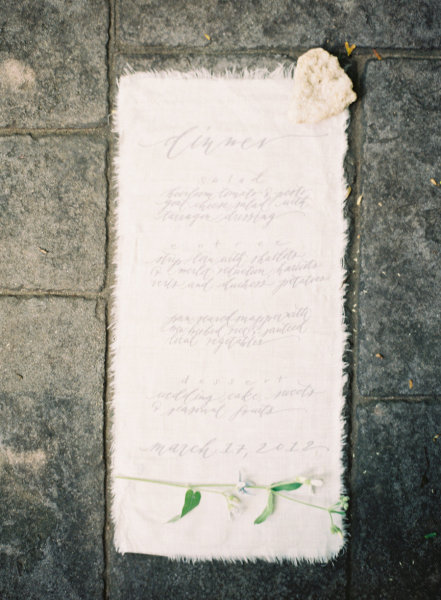 dinner
salad
heirloom tomato &
goat cheese salad with
tarragon dressing
entree
strip loin with shallots
& merlot reduction, haricots
verts and duchess potatoes
pan seared snapper with
rice, sautéed
local vegetables
dessert
wedding cake, sweets
& seasonal fruits
march 17, 2012